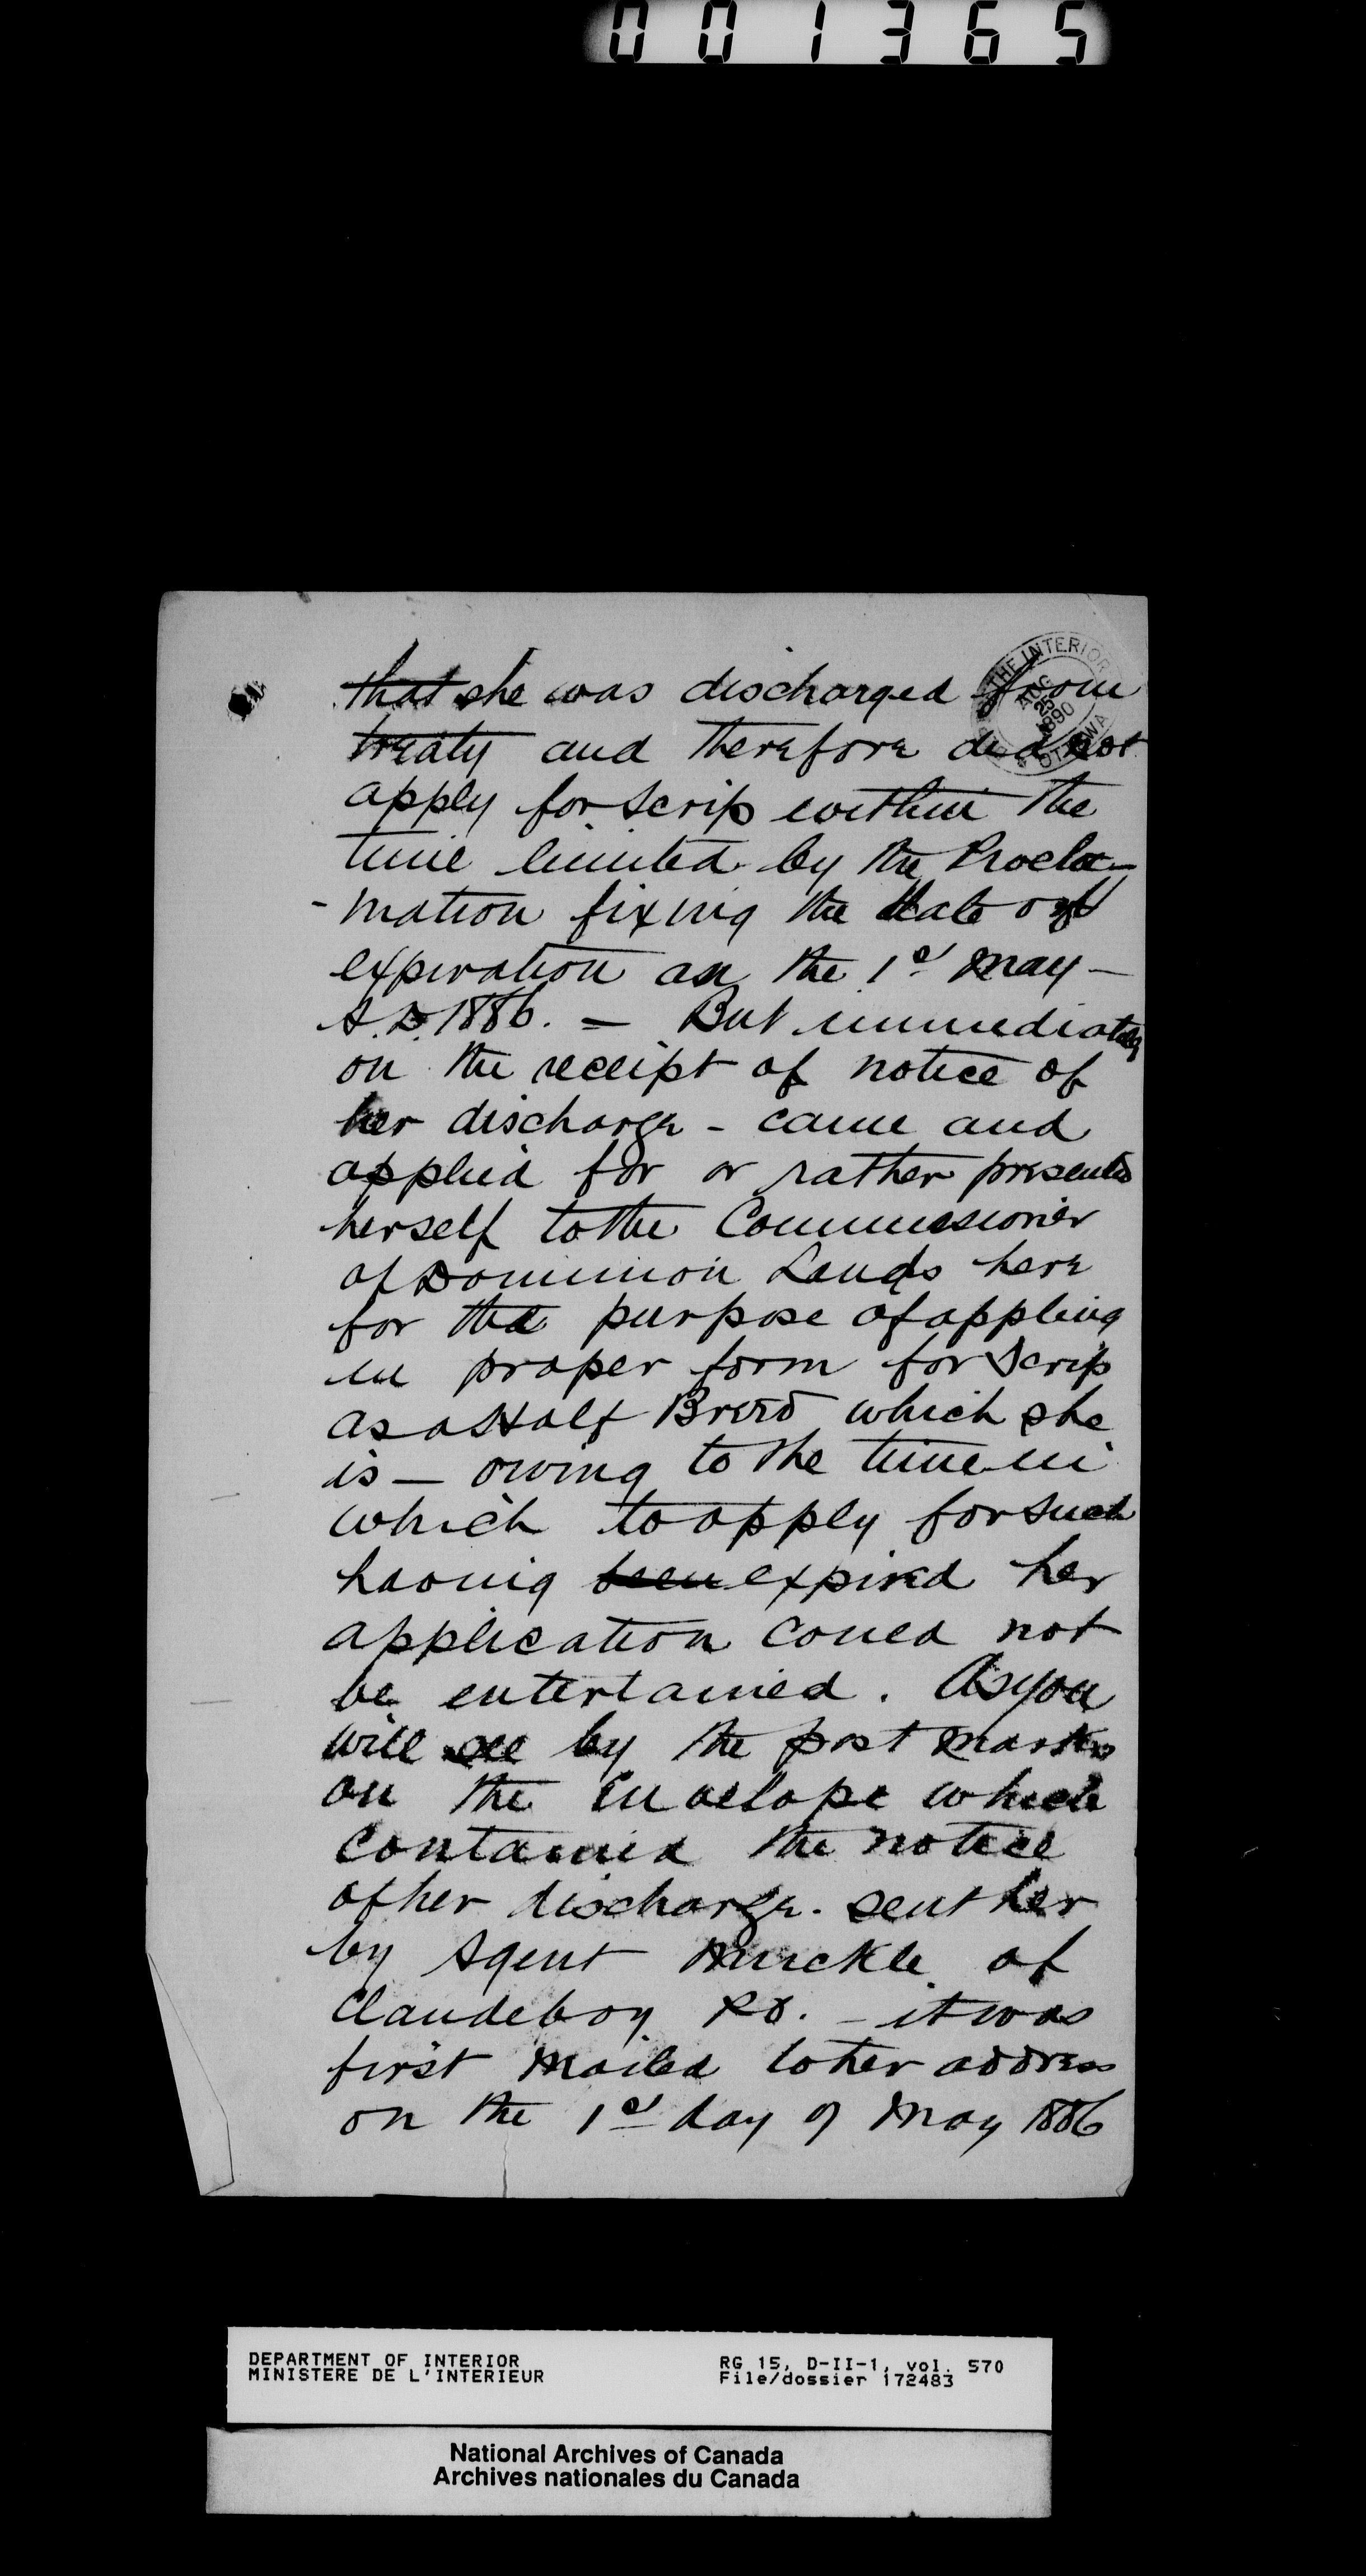 001365
that she was discharged from
treaty and therefore did not
apply for Scrip within the
time limited by the Procla-
-mation fixing the date of
expiration as the 1st May -
A.D. 1886. - But immediately
on the receipt of notice of
her discharge - came and
applied for or rather presented
herself to the Commissioner
of Dominion Lands here
for the purpose of appling
in proper form for Scrip
as a Half Breed which she
is - owing to the time in
which to apply for such
having been expired her
application could not
be entertained. As you
will see by the post marks
on the Envelope which
contained the notice
of her discharge. sent her
by Agent Muckle of
Clandeboy P.O. - it was
first mailed to her address
on the 1st day of May 1886
THE INTERIOR
AUG 25 1890
OTTAWA
DEPARTMENT OF INTERIOR
MINISTERE DE L'INTERIEUR
RG 15, D-II-1, vol. 570
File/dossier 172483
National Archives of Canada
Archives nationales du Canada